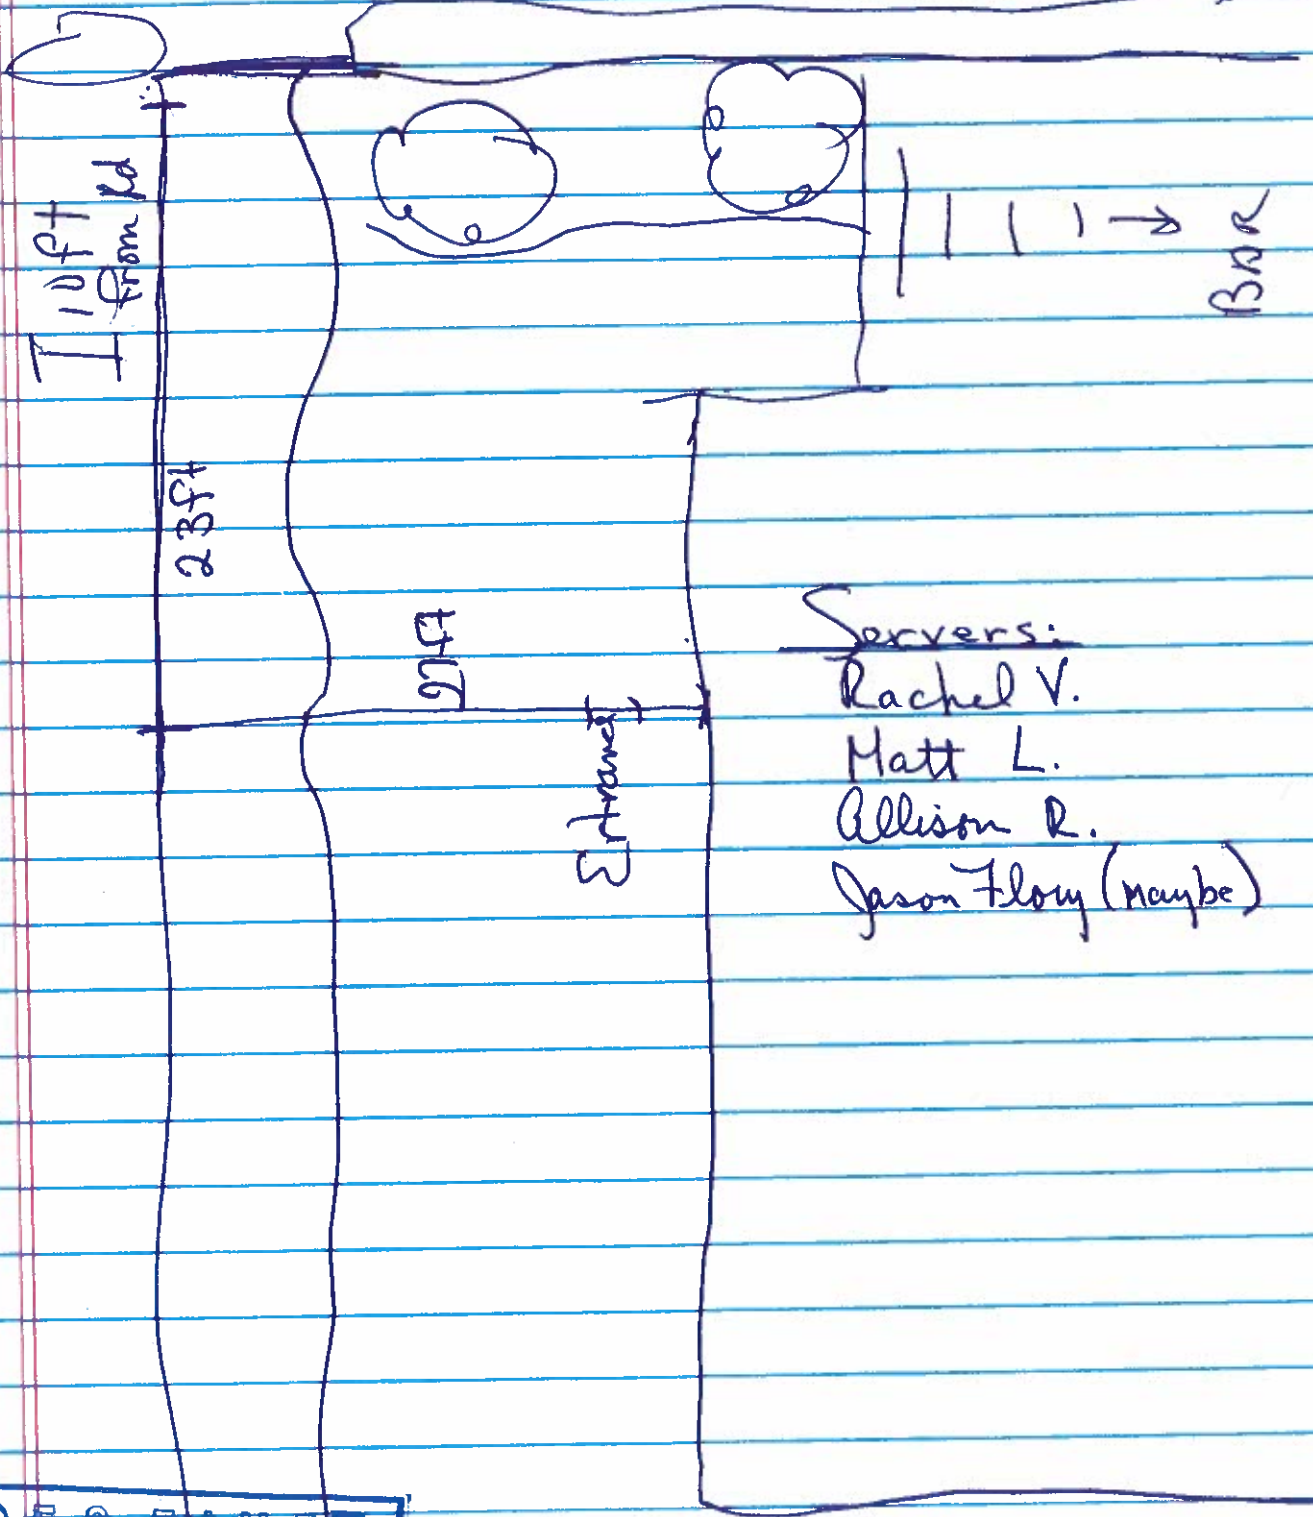 10ft
from Rd
23ft
27ft
Entrance
Bar
Servers:
Rachel V.
Matt L.
Allison R.
Jason Flory (maybe)